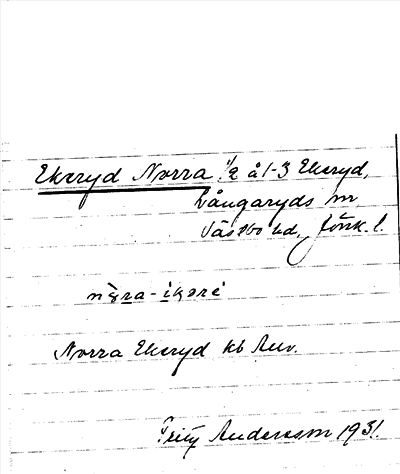 Ekeryd Norra 1/2 å 1-3 Ekeryd,
Långaryds sn
Västbo hd, Jönk. l.
Norra Ekeryd kb
Fritz Andersson 1931.